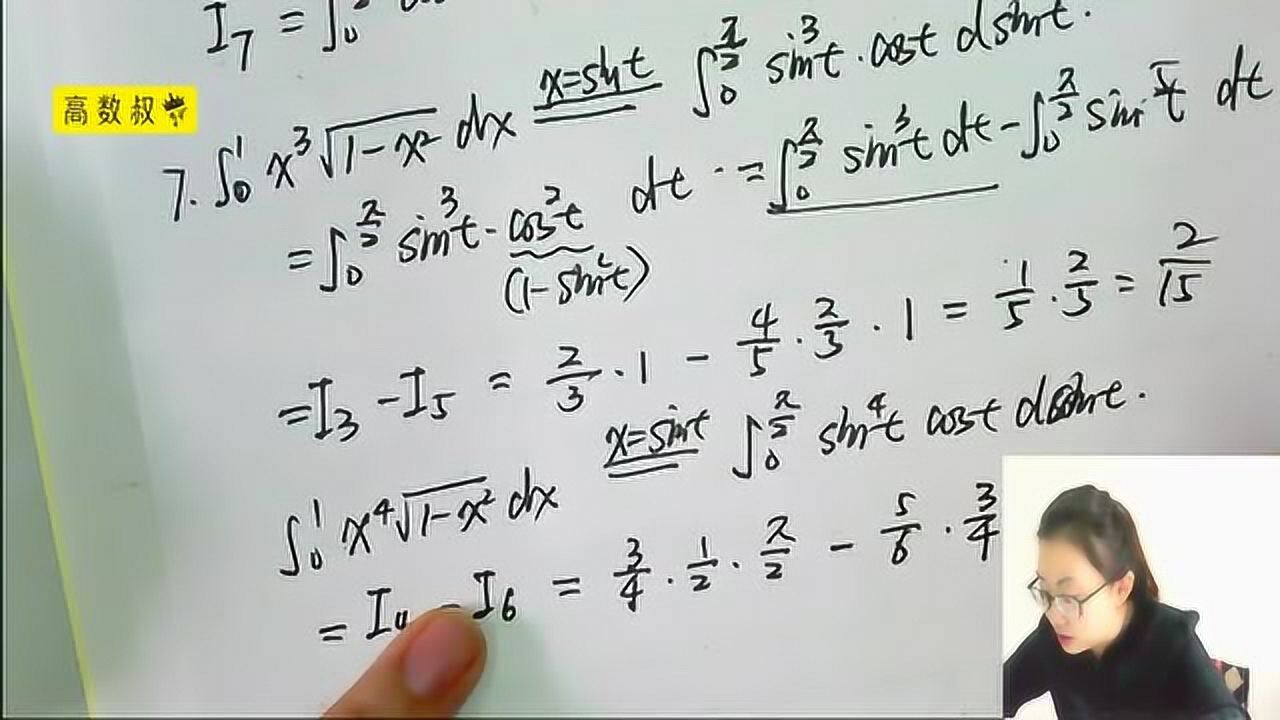 I₇ = ∫₀
高数叔
7. ∫₀¹ x³√(1-x²) dx x=sint ∫₀^(π/2) sin³t · cost dsint.
= ∫₀^(π/2) sin³t · cos²t dt = ∫₀^(π/2) sin³t dt - ∫₀^(π/2) sin⁵t dt
(1-sin²t)
= I₃ - I₅ = 2/3 · 1 - 4/5 · 2/3 · 1 = 1/5 · 2/3 = 2/15
∫₀¹ x⁴√(1-x²) dx x=sint ∫₀^(π/2) sin⁴t cost dsint.
= I₄ - I₆ = 3/4 · 1/2 · π/2 - 5/6 · 3/4